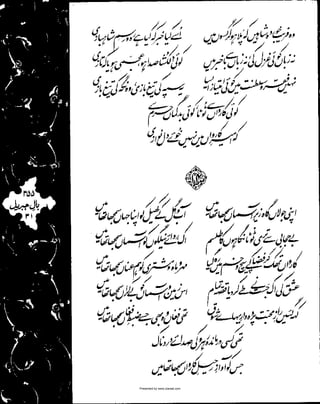 وہ فریب خوردہ شاہیں کہ پلا ہو کرگسوں میں
اُسے کیا خبر کہ کیا ہے رہ و رسمِ شاہبازی
نہ زباں کوئی غزل کی، نہ زباں سے باخبر میں
کوئی دلکشا صدا ہو، عجمی ہو یا کہ تازی
نہیں فقر و سلطنت میں کوئی امتیاز ایسا
یہ سپہ کی تیغ بازی، وہ نگہ کی تیغ بازی
کوئی کارواں سے ٹوٹا، کوئی بدگماں حرم سے
کہ امیرِ کارواں میں نہیں خوئے دل نوازی
اپنی جولاں گاہ زیرِ آسماں سمجھا تھا میں
آب و گل کے کھیل کو اپنا جہاں سمجھا تھا میں
بے حجابی سے تری ٹوٹا نگاہوں کا طلسم
اک ردائے نیلگوں کو آسماں سمجھا تھا میں
کارواں تھک کر فضا کے پیچ و خم میں رہ گیا
مہر و ماہ و مشتری کو ہم عناں سمجھا تھا میں
عشق کی اک جست نے طے کر دیا قصہ تمام
اس زمین و آسماں کو بے کراں سمجھا تھا میں
کہہ گئیں رازِ محبت پردہ داری ہائے شوق
تھی فغاں وہ بھی جسے ضبطِ فغاں سمجھا تھا میں
تھی کسی درماندہ رہرو کی صدائے دردناک
جس کو آوازِ رحیلِ کارواں سمجھا تھا میں
۳۵۵
بالِ جبریل
۳۱
Presented by www.ziaraat.com